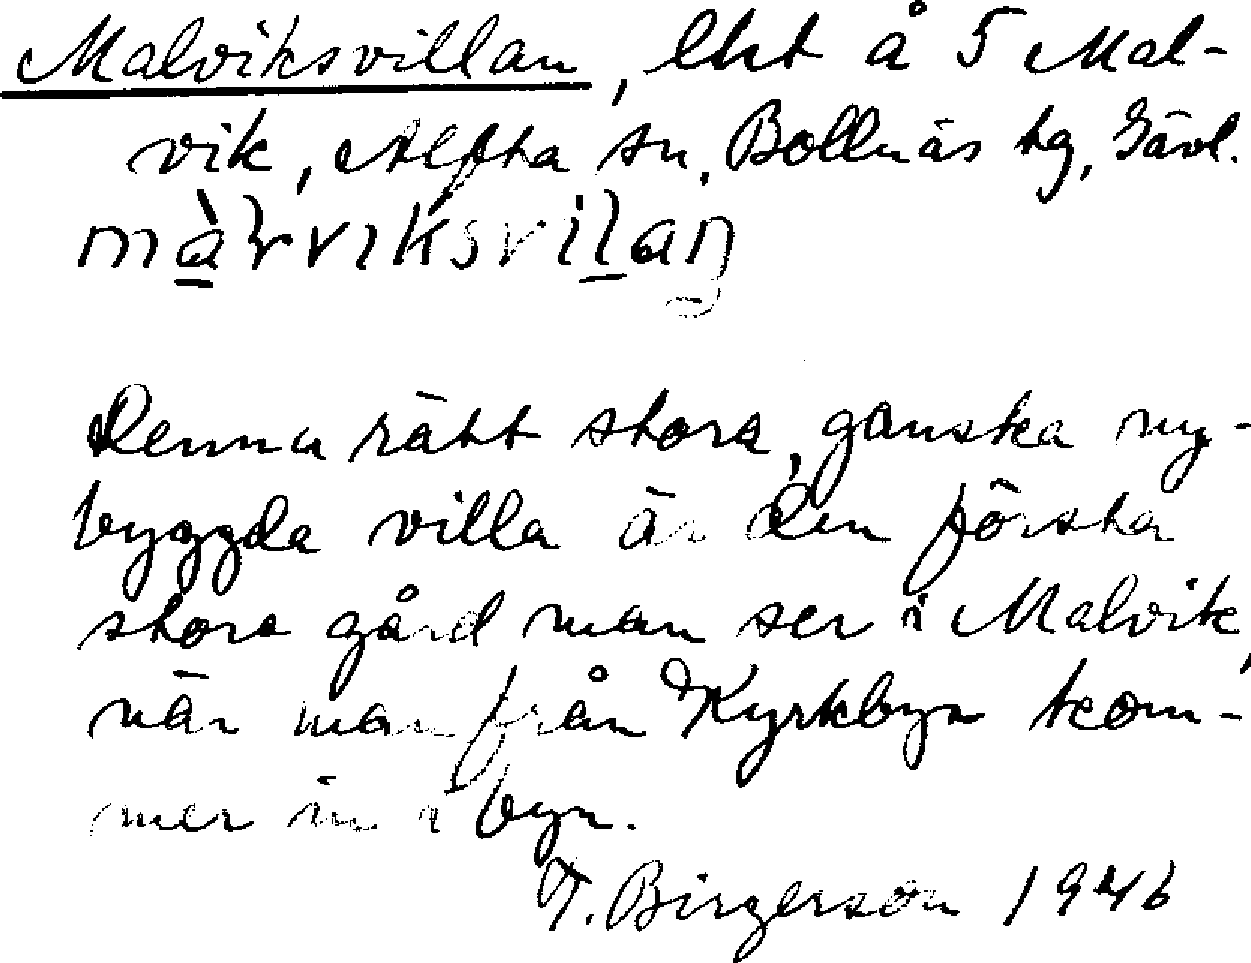 Malviksvillan, lht å 5 Mal-
vik, Alfta sn, Bollnäs tg, Gävl.
Denna rätt stora, ganska ny-
byggda villa är den första
stora gård man ser i Malvik,
när man från Kyrkbyn kom-
mer in i byn.
T. Birgerson 1946